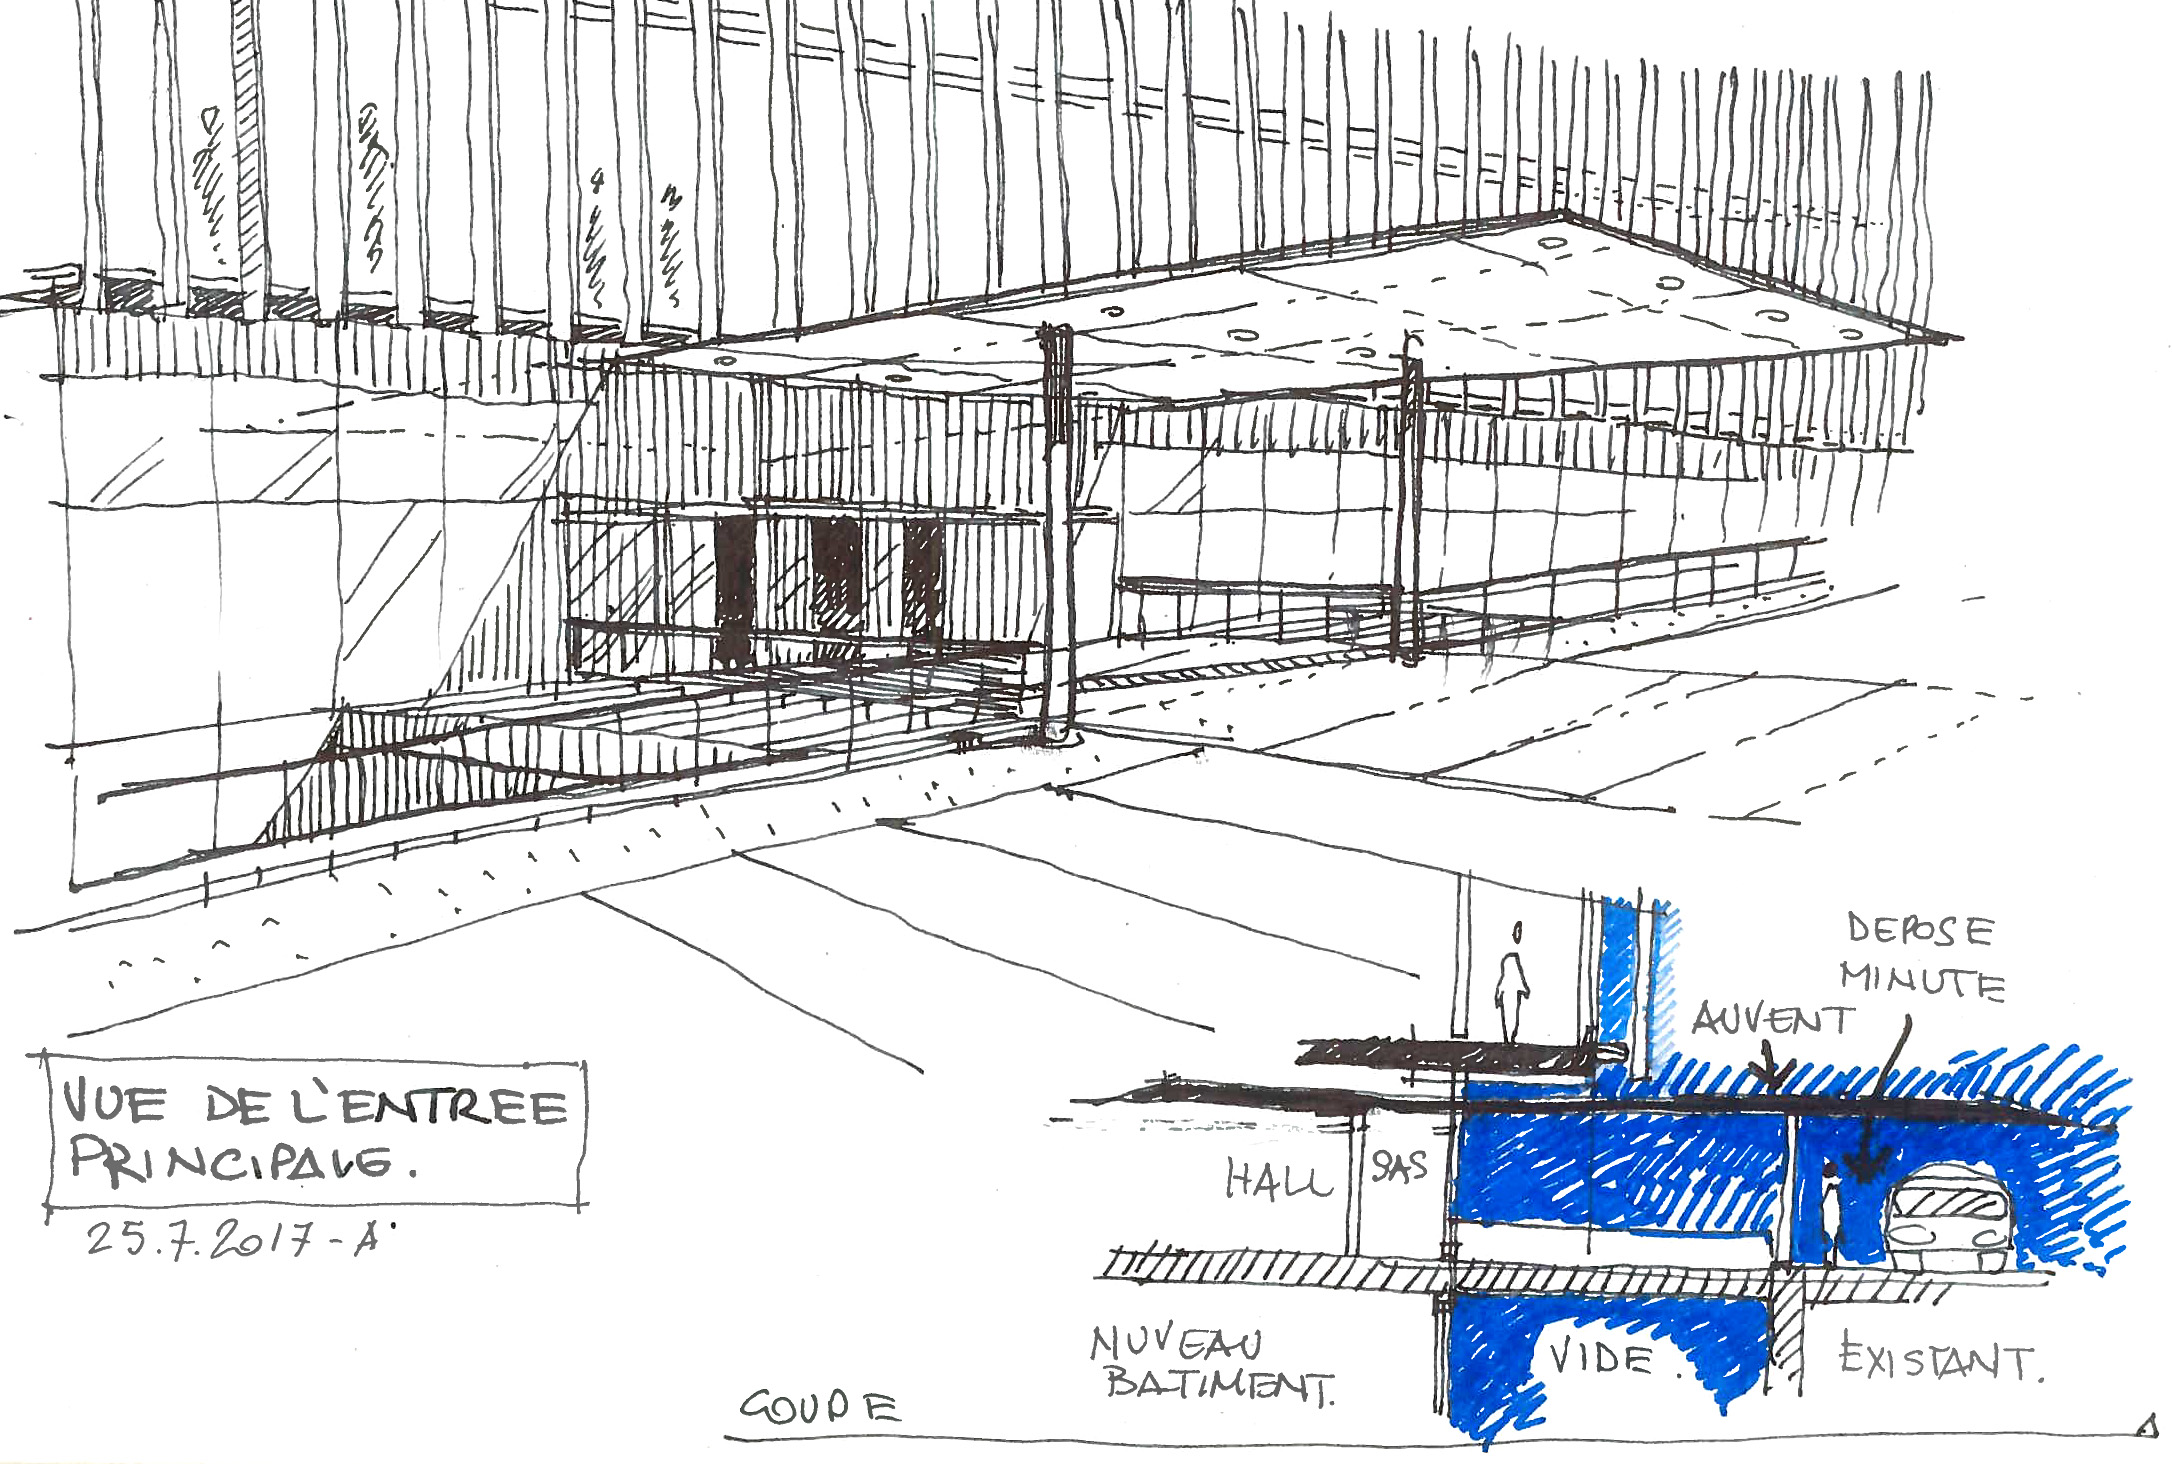 VUE DE L'ENTREE
PRINCIPALE.
25.7.2017 - A.
DEPOSE
MINUTE
AUVENT
HALL
SAS
NUVEAU
BATIMENT.
VIDE.
EXISTANT.
COUPE